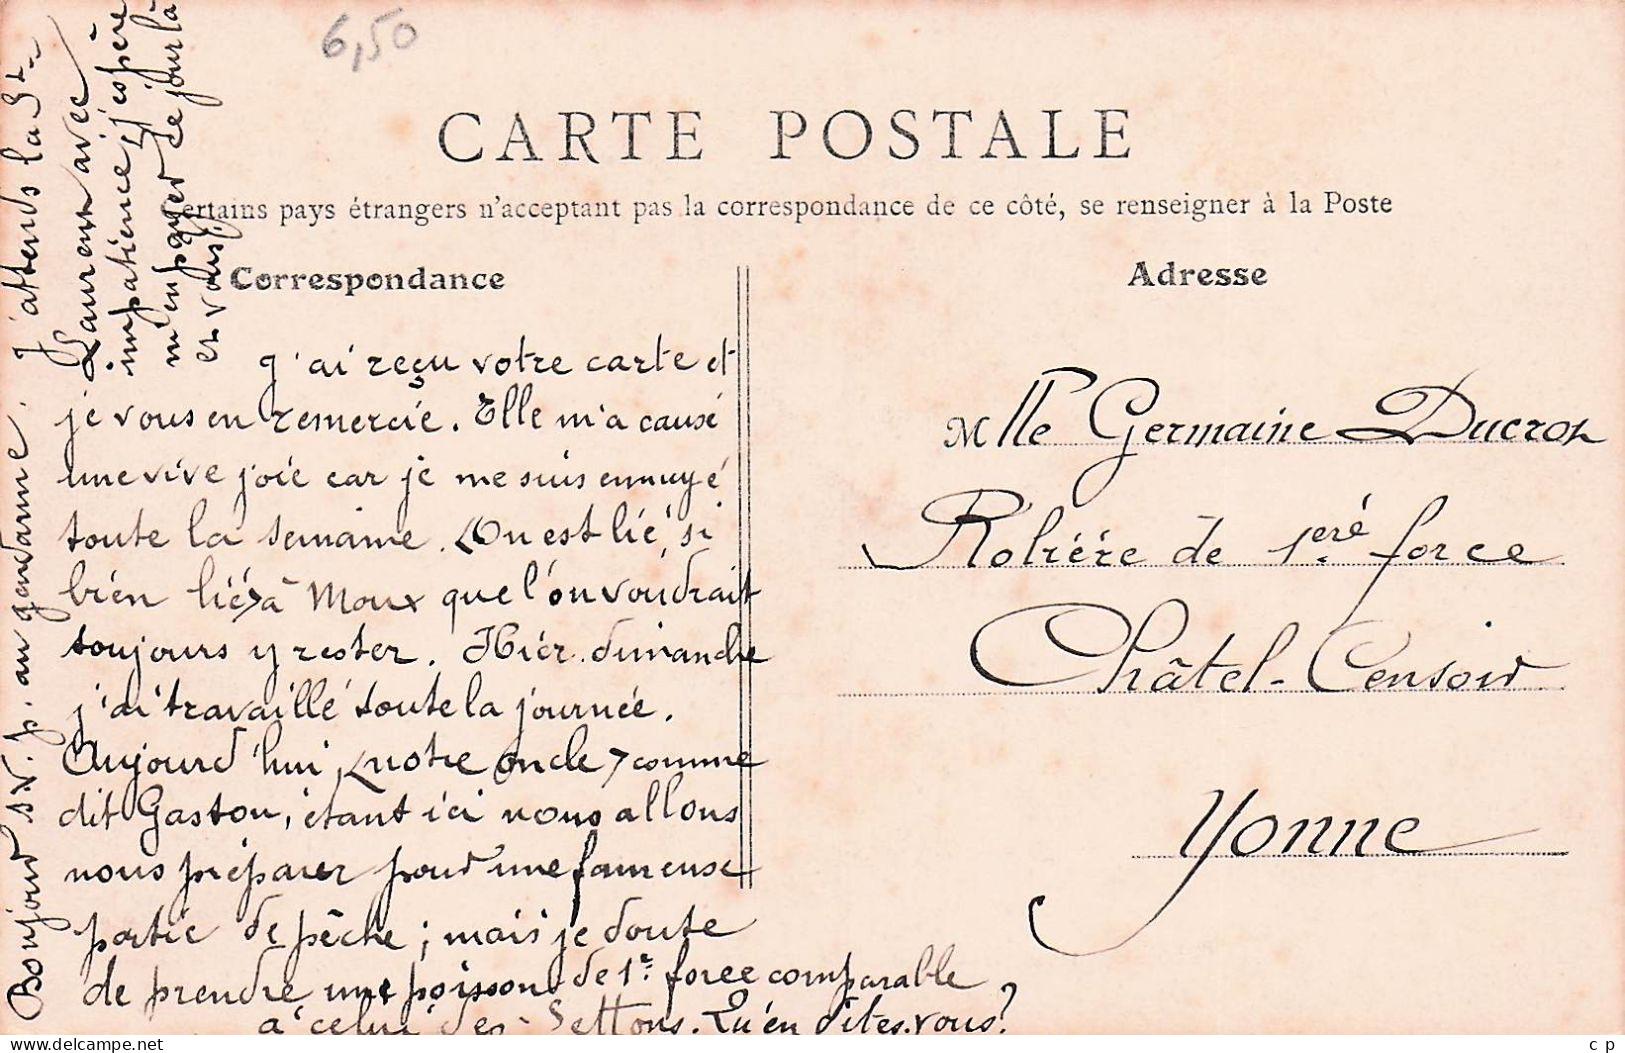 6,50
CARTE POSTALE
Certains pays étrangers n'acceptant pas la correspondance de ce côté, se renseigner à la Poste
Correspondance
Adresse
J'ai reçu votre carte et
je vous en remercie. Elle m'a causé
une vive joie car je me suis ennuyé
toute la semaine. On est lié, si
bien lié à Moux que l'on voudrait
toujours y rester. Hier dimanche
j'ai travaillé toute la journée.
Aujourd'hui <notre oncle> comme
dit Gaston, étant ici nous allons
nous préparer pour une fameuse
partie de pêche ; mais je doute
de prendre une poisson de 1re force comparable
à celui des Settons. Qu'en dites-vous?
Bonjour s.v.p. au gendarme. J'attends la St-
Laurent avec
impatience et j'espère
m'en payer ce jour là
et vous?
Mlle Germaine Ducrot
de 1ère force
Châtel-Censoir
Yonne
delcampe.net
c p